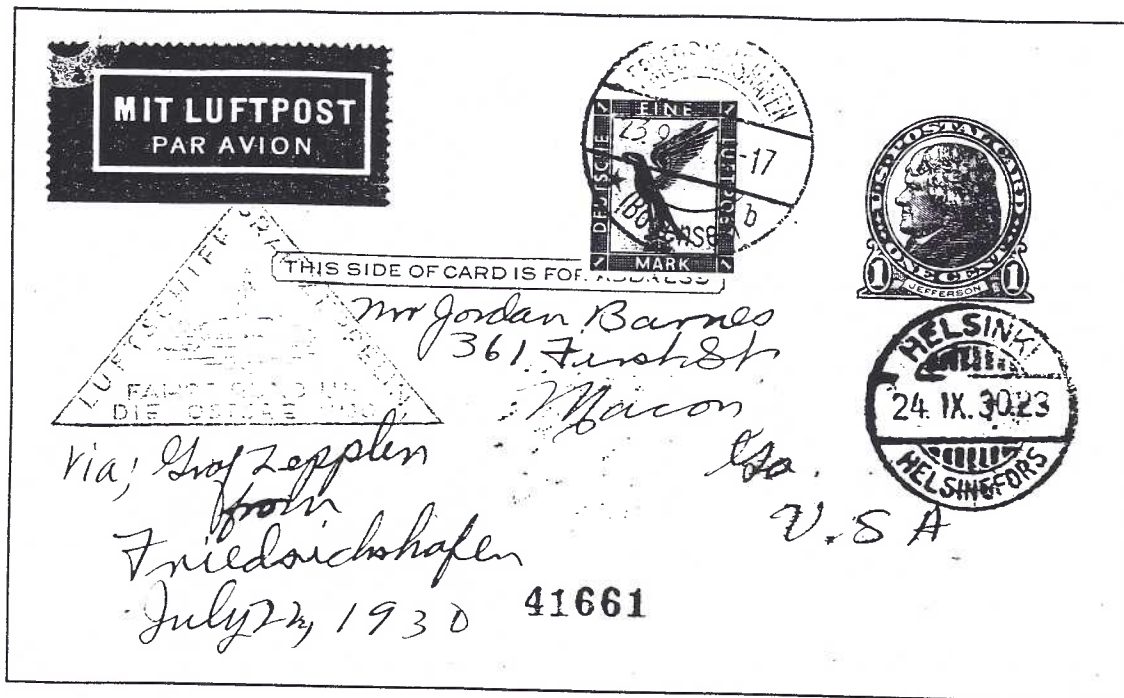 MIT LUFTPOST
PAR AVION
FRIEDRICHSHAFEN
23.9
-17
(Bodensee) b
EINE
DEUTSCHE
LUFTPOST
MARK
1 1 1 1
U.S. POSTAL CARD
ONE CENT
1 1
JEFFERSON
THIS SIDE OF CARD IS FOR ADDRESS
LUFTSCHIFF GRAF ZEPPELIN
FAHRT RUND UM
DIE OSTSEE 1930
Mr Jordan Barnes
361 First St
Macon
Ga.
U.S A
HELSINKI
24. IX. 30.23
HELSINGFORS
Via; Graf Zepplen
from
Friedrichshafen
July 22, 1930
41661